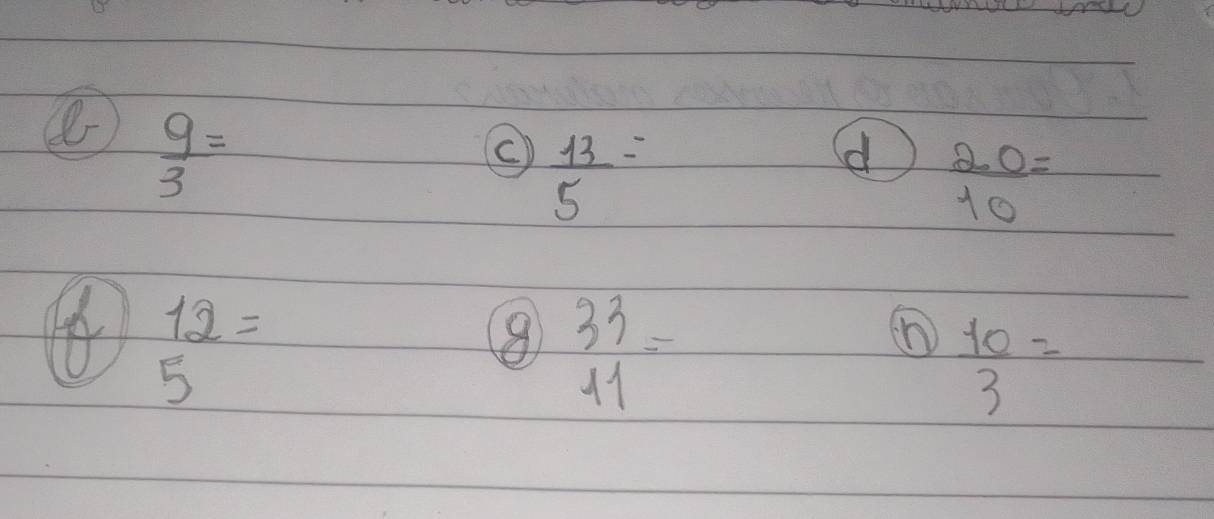 b) 9/3 = c) 13/5 = d) 20/10 =
f) 12/5 = g) 33/11 = h) 10/3 =